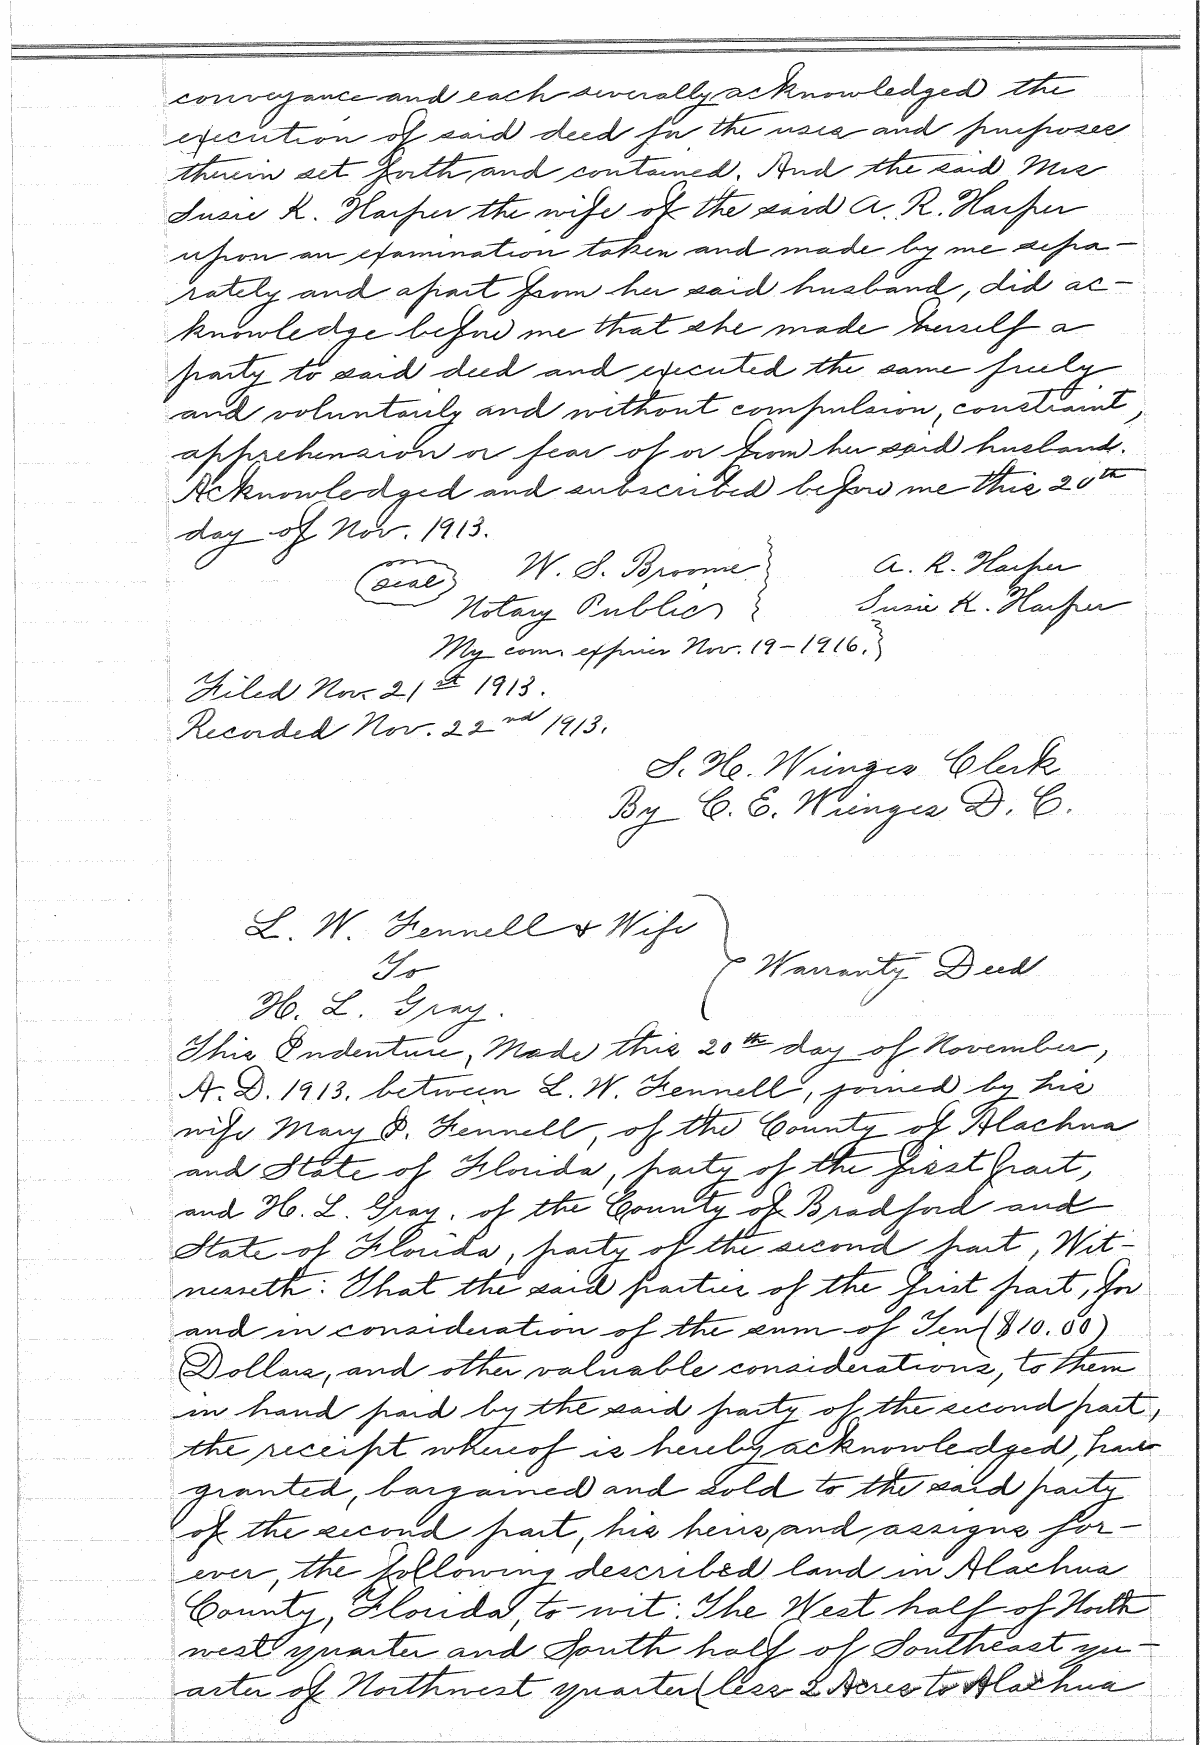 conveyance and each severally acknowledged the
execution of said deed for the uses and purposes
therein set forth and contained. And the said Mrs
Susie K. Harper the wife of the said A. R. Harper
upon an examination taken and made by me sepa-
rately and apart from her said husband, did ac-
knowledge before me that she made herself a
party to said deed and executed the same freely
and voluntarily and without compulsion, constraint,
apprehension or fear of or from her said husband.
Acknowledged and subscribed before me this 20th
day of Nov. 1913.
(seal) W. S. Broome } A. R. Harper
Notary Public } Susie K. Harper
My com. expires Nov. 19-1916. }
Filed Nov. 21st 1913.
Recorded Nov. 22nd 1913.
S. H. Wienges Clerk
By C. E. Wienges D. C.
L. W. Fennell & Wife
To } Warranty Deed
H. L. Gray.
This Indenture, Made this 20th day of November,
A. D. 1913. between L. W. Fennell, joined by his
wife Mary P. Fennell, of the County of Alachua
and State of Florida, party of the first part,
and H. L. Gray. of the County of Bradford and
State of Florida, party of the second part, Wit-
nesseth: That the said parties of the first part, for
and in consideration of the sum of Ten ($10.00)
Dollars, and other valuable considerations, to them
in hand paid by the said party of the second part,
the receipt whereof is hereby acknowledged, have
granted, bargained and sold to the said party
of the second part, his heirs, and assigns for-
ever, the following described land in Alachua
County, Florida, to-wit: The West half of North
west quarter and South half of Southeast qu-
arter of Northwest quarter (less 2 Acres to Alachua